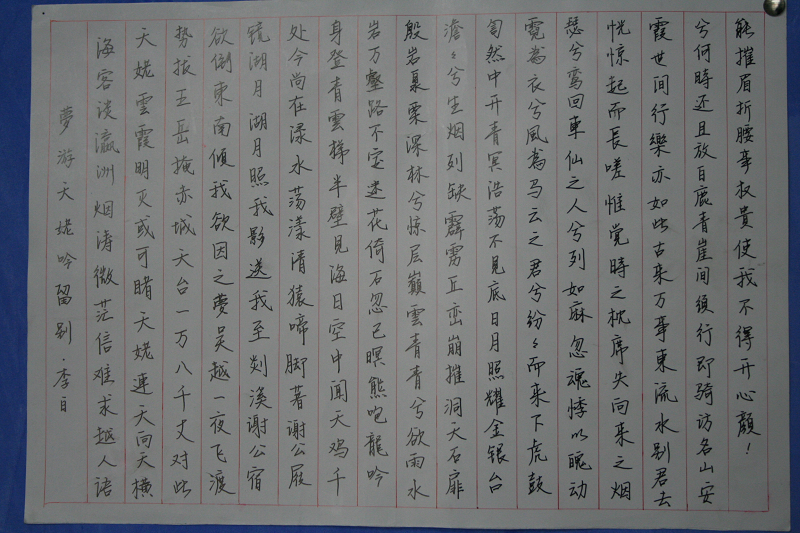 夢游天姥吟留别·李白
海客谈瀛洲烟涛微茫信难求越人语
天姥雲霞明灭或可睹天姥連天向天横
势拔五岳掩赤城天台一万八千丈对此
欲倒東南傾我欲因之夢吴越一夜飞渡
镜湖月湖月照我影送我至剡溪谢公宿
处今尚在渌水荡漾清猿啼脚著谢公屐
身登青雲梯半壁見海日空中闻天鸡千
岩万壑路不定迷花倚石忽已暝熊咆龍吟
殷岩泉栗深林兮惊层巅雲青青兮欲雨水
澹々兮生烟列缺霹雳丘峦崩摧洞天石扉
訇然中开青冥浩荡不見底日月照耀金银台
霓為衣兮風為马云之君兮纷々而来下虎鼓
瑟兮鸾回車仙之人兮列如麻忽魂悸以魄动
恍惊起而長嗟惟觉時之枕席失向来之烟
霞世间行樂亦如此古来万事東流水别君去
兮何時还且放白鹿青崖间须行即骑访名山安
能摧眉折腰事权貴使我不得开心颜！